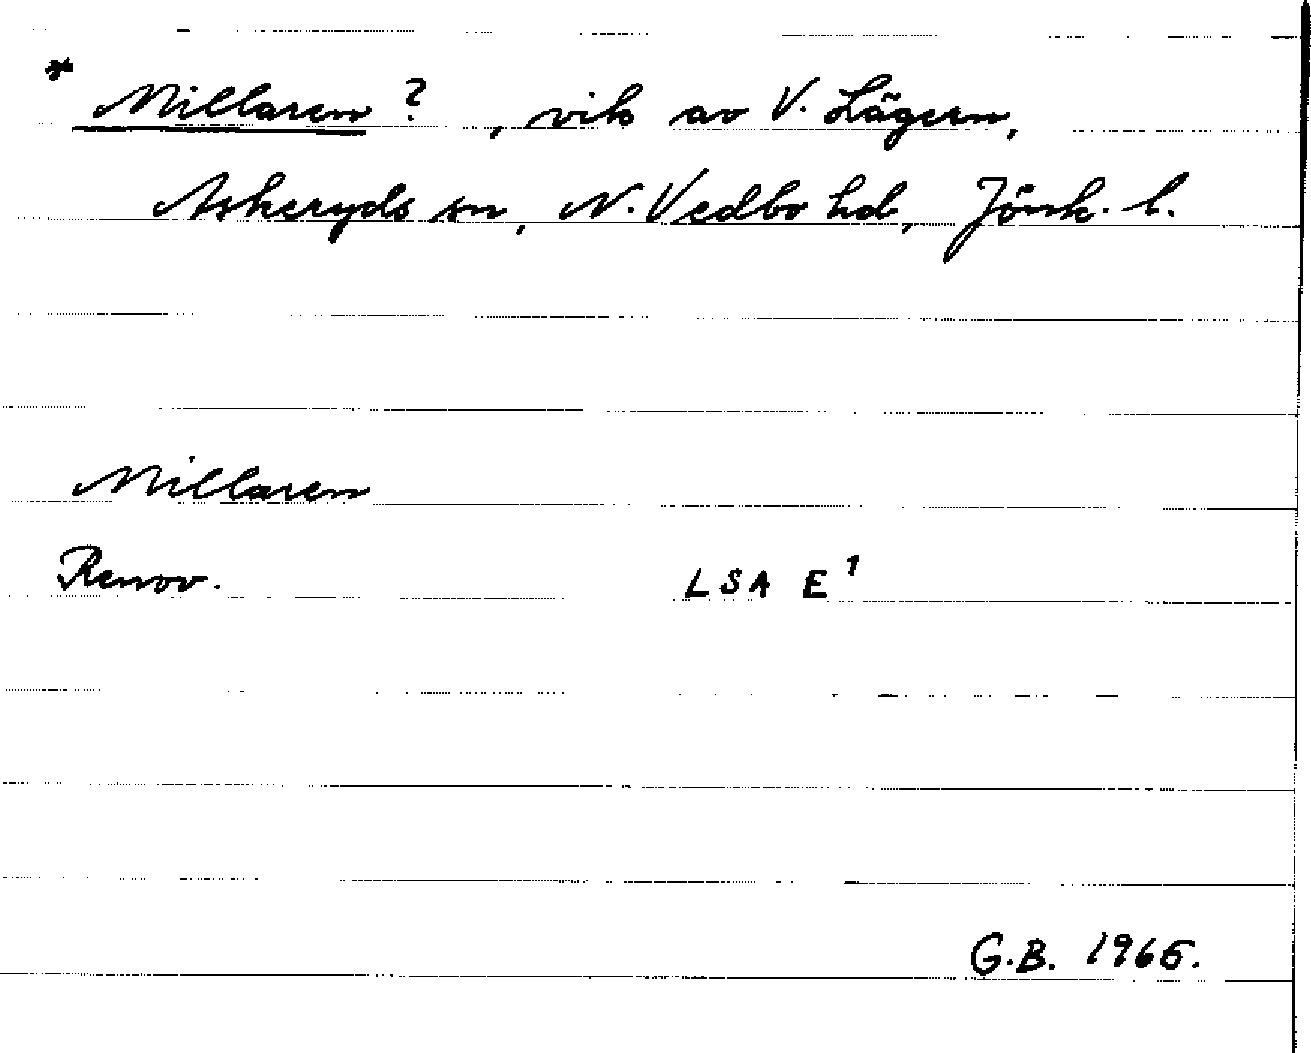 * Millaren ?, vik av V. Lägern,
Askeryds sn, N. Vedbo hd, Jönk. l.
Millaren
Renov. LSA E¹
G.B. 1965.